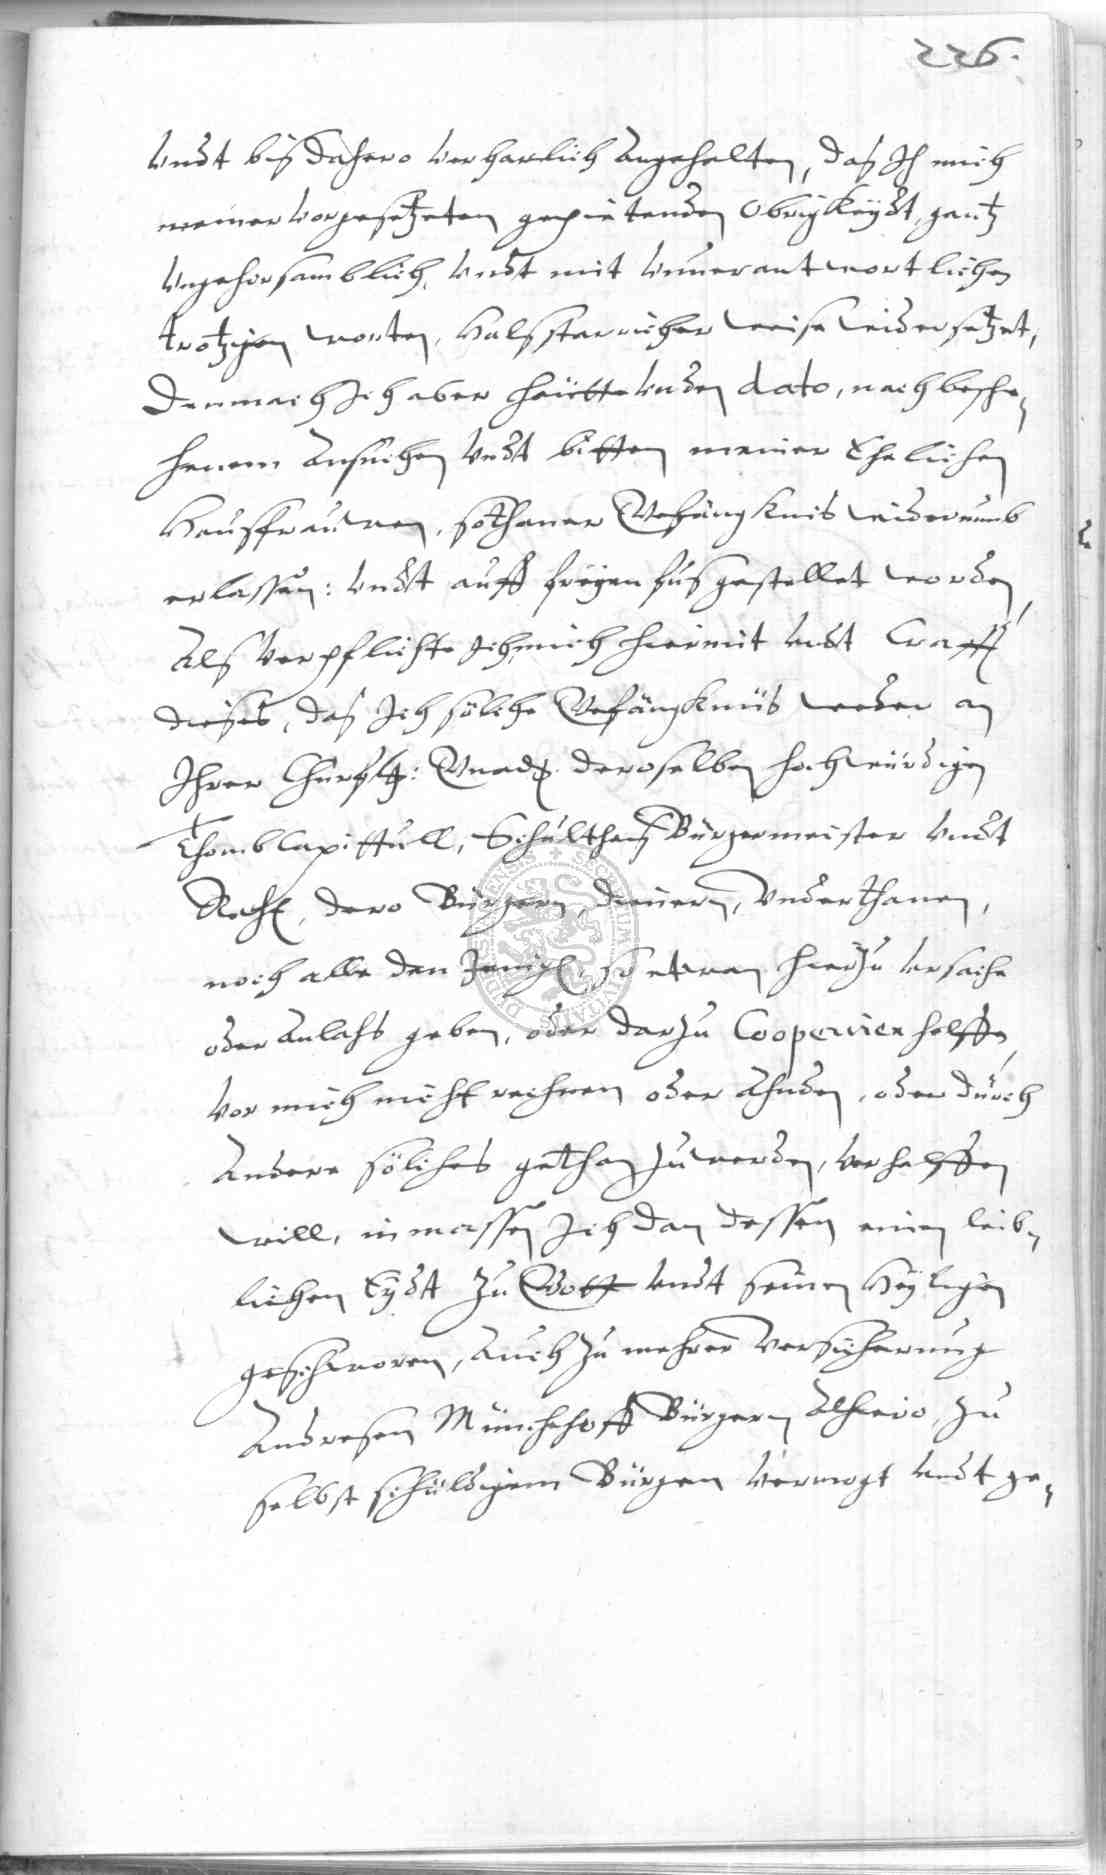 226.
Vndt bis dahero verharlich angehalten, das Ich mich
meiner vorgesetzeten gepietenden Obrigkeydt, gantz
Vngehorsamblich, vndt mit vnuerantwortlichen
trotzigen worten, halsstarricher weise widersetzet,
Demnach Ich aber heutte vnden dato, nach besche„
henem Ansuchen vndt bitten meiner Ehelichen
Hausfrauwen, sothaner Gefängknis widerumb
erlassen: vndt auff freyen fus gestellet worden,
Als verpflichte Ich mich hiermit vndt Crafft
dieses, das Ich solche Gefängknüs weder an
Ihrer Churfl: Gnad. deroselben hochwürdigen
Thombcapittull, Schultheis Bürgermeister vndt
Rath, dero Bürgern, dienern, Vnderthanen,
noch alle den Jenigen, so etwan hierzu vrsache
oder Anlahs geben, oder darzu Cooperiren helffen,
Vor mich nicht rechnen oder Ahnden, oder durch
Andere solches gethan zu werden, verhelffen
will, inmassen Ich dan dessen einen leib„
lichen Eydt zu Gott vndt seinen Heyligen
geschworen, Auch zu mehrer Versicherung
Andresen Münchhoff Bürgern Alhiero, zu
selbst schuldigem Bürgen vermogt vndt ge„
SIGILLUM CIVITATIS